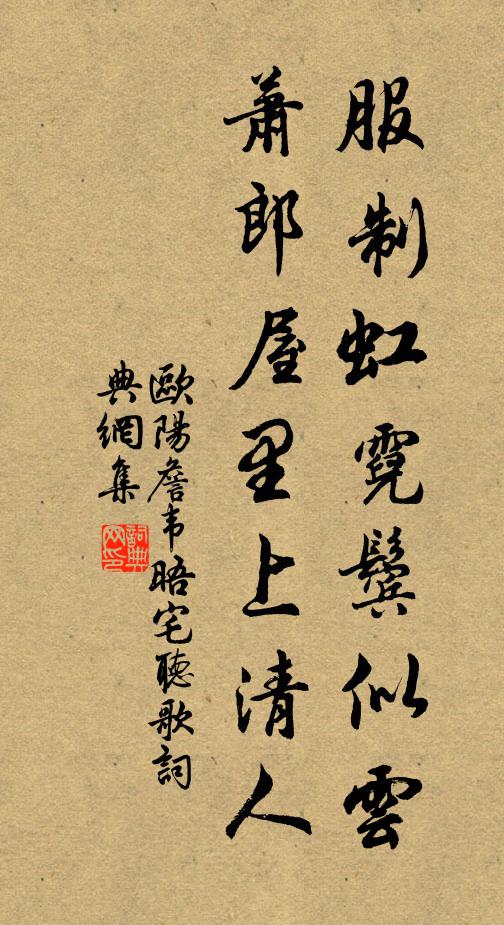 服制虹霓鬢似雲
蕭郎屋里上清人
歐陽詹韦晤宅聽歌詞
典網集
詞典
网印